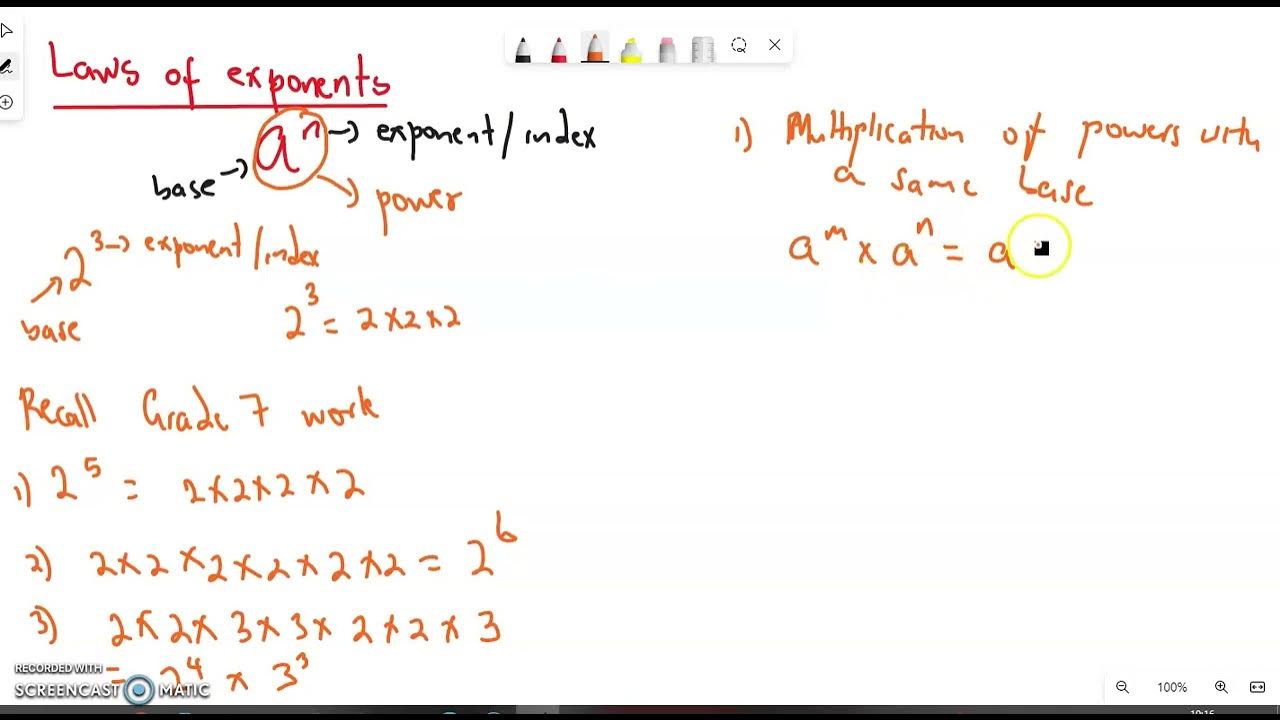 Laws of exponents
aⁿ → exponent/index
base →
→ power
2³ → exponent/index
base
2³ = 2×2×2
Recall Grade 7 work
1) 2⁵ = 2×2×2×2
2) 2×2×2×2×2×2 = 2⁶
3) 2×2×3×3×2×2×3
= 2⁴ × 3³
1) Multiplication of powers with
a same base
aᵐ × aⁿ = a
RECORDED WITH
SCREENCAST MATIC
100%
10:16